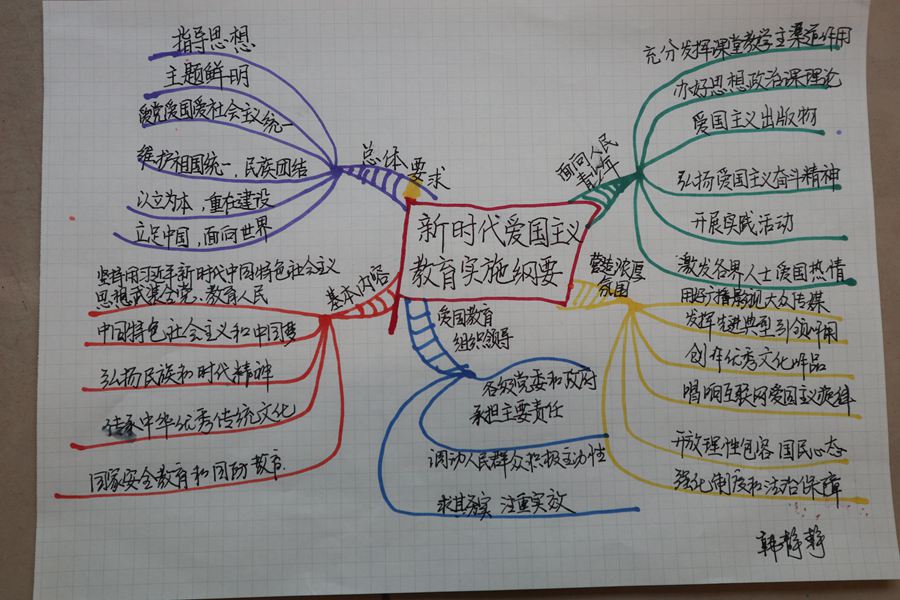 新时代爱国主义
教育实施纲要
总体要求
指导思想
主题鲜明
爱党爱国爱社会主义统一
维护祖国统一，民族团结
以立为本，重在建设
立足中国，面向世界
基本内容
坚持用习近平新时代中国特色社会主义
思想武装全党、教育人民
中国特色社会主义和中国梦
弘扬民族和时代精神
传承中华优秀传统文化
国家安全教育和国防教育
爱国教育
组织领导
各级党委和政府
承担主要责任
调动人民群众积极主动性
求其务实 注重实效
面向人民
青少年
充分发挥课堂教学主渠道作用
办好思想政治课理论
爱国主义出版物
弘扬爱国主义奋斗精神
开展实践活动
激发各界人士爱国热情
营造浓厚
氛围
用好广播影视大众传媒
发挥先进典型引领作用
创作优秀文化作品
唱响互联网爱国主义旋律
开放理性包容国民心态
强化制度和法治保障
韩静静